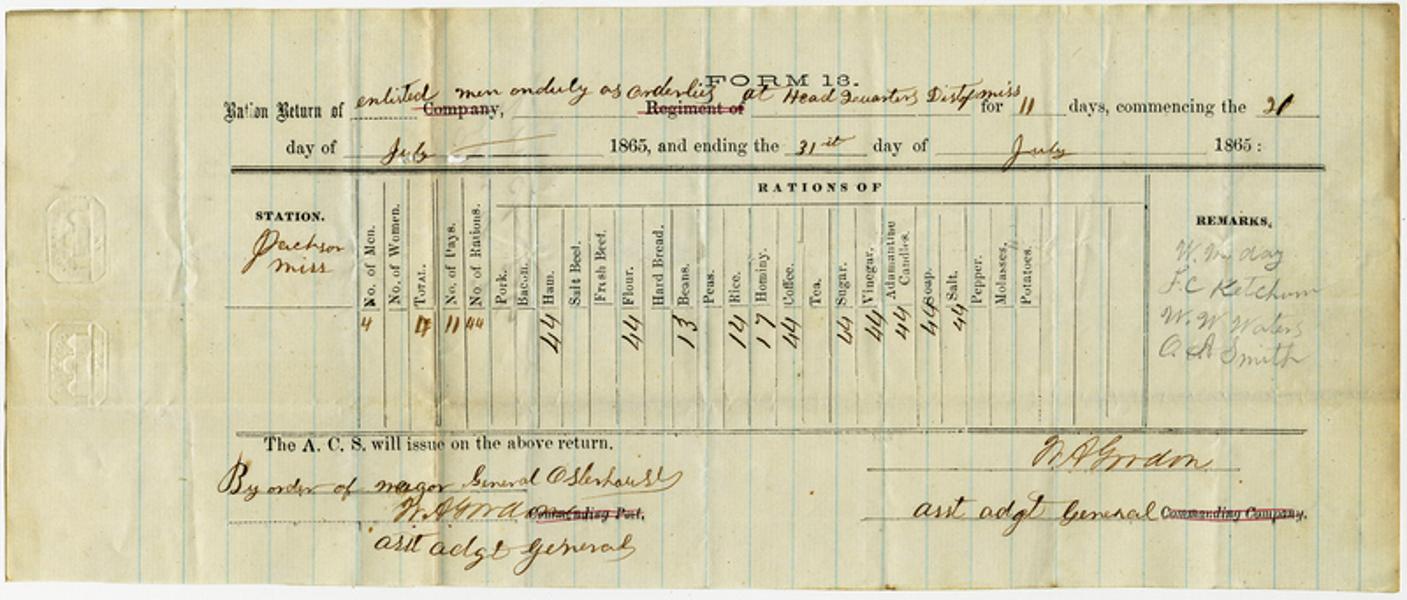 FORM 13.
Ration Return of enlisted Company, men on duly as orderlies Regiment of at Head Quarters Dist of miss for 11 days, commencing the 21
day of July 1865, and ending the 31st day of July 1865:
RATIONS OF
STATION.
No. of Men.
No. of Women.
TOTAL.
No. of Days.
No. of Rations.
Pork.
Bacon.
Ham.
Salt Beef.
Fresh Beef.
Flour.
Hard Bread.
Beans.
Peas.
Rice.
Hominy.
Coffee.
Tea.
Sugar.
Vinegar.
Adamantine
Candles.
Soap.
Salt.
Pepper.
Molasses.
Potatoes.
REMARKS.
Jackson
miss
4 4 11 44 44 44 13 14 17 44 44 44 44 44 44
W. M day
F. C Ketchum
W. W Waters
O. A Smith
The A. C. S. will issue on the above return.
By order of magor General Osterhaust
W A Gordon Commanding Post.
asst adgt General
W A Gordon
asst adgt General Commanding Company.